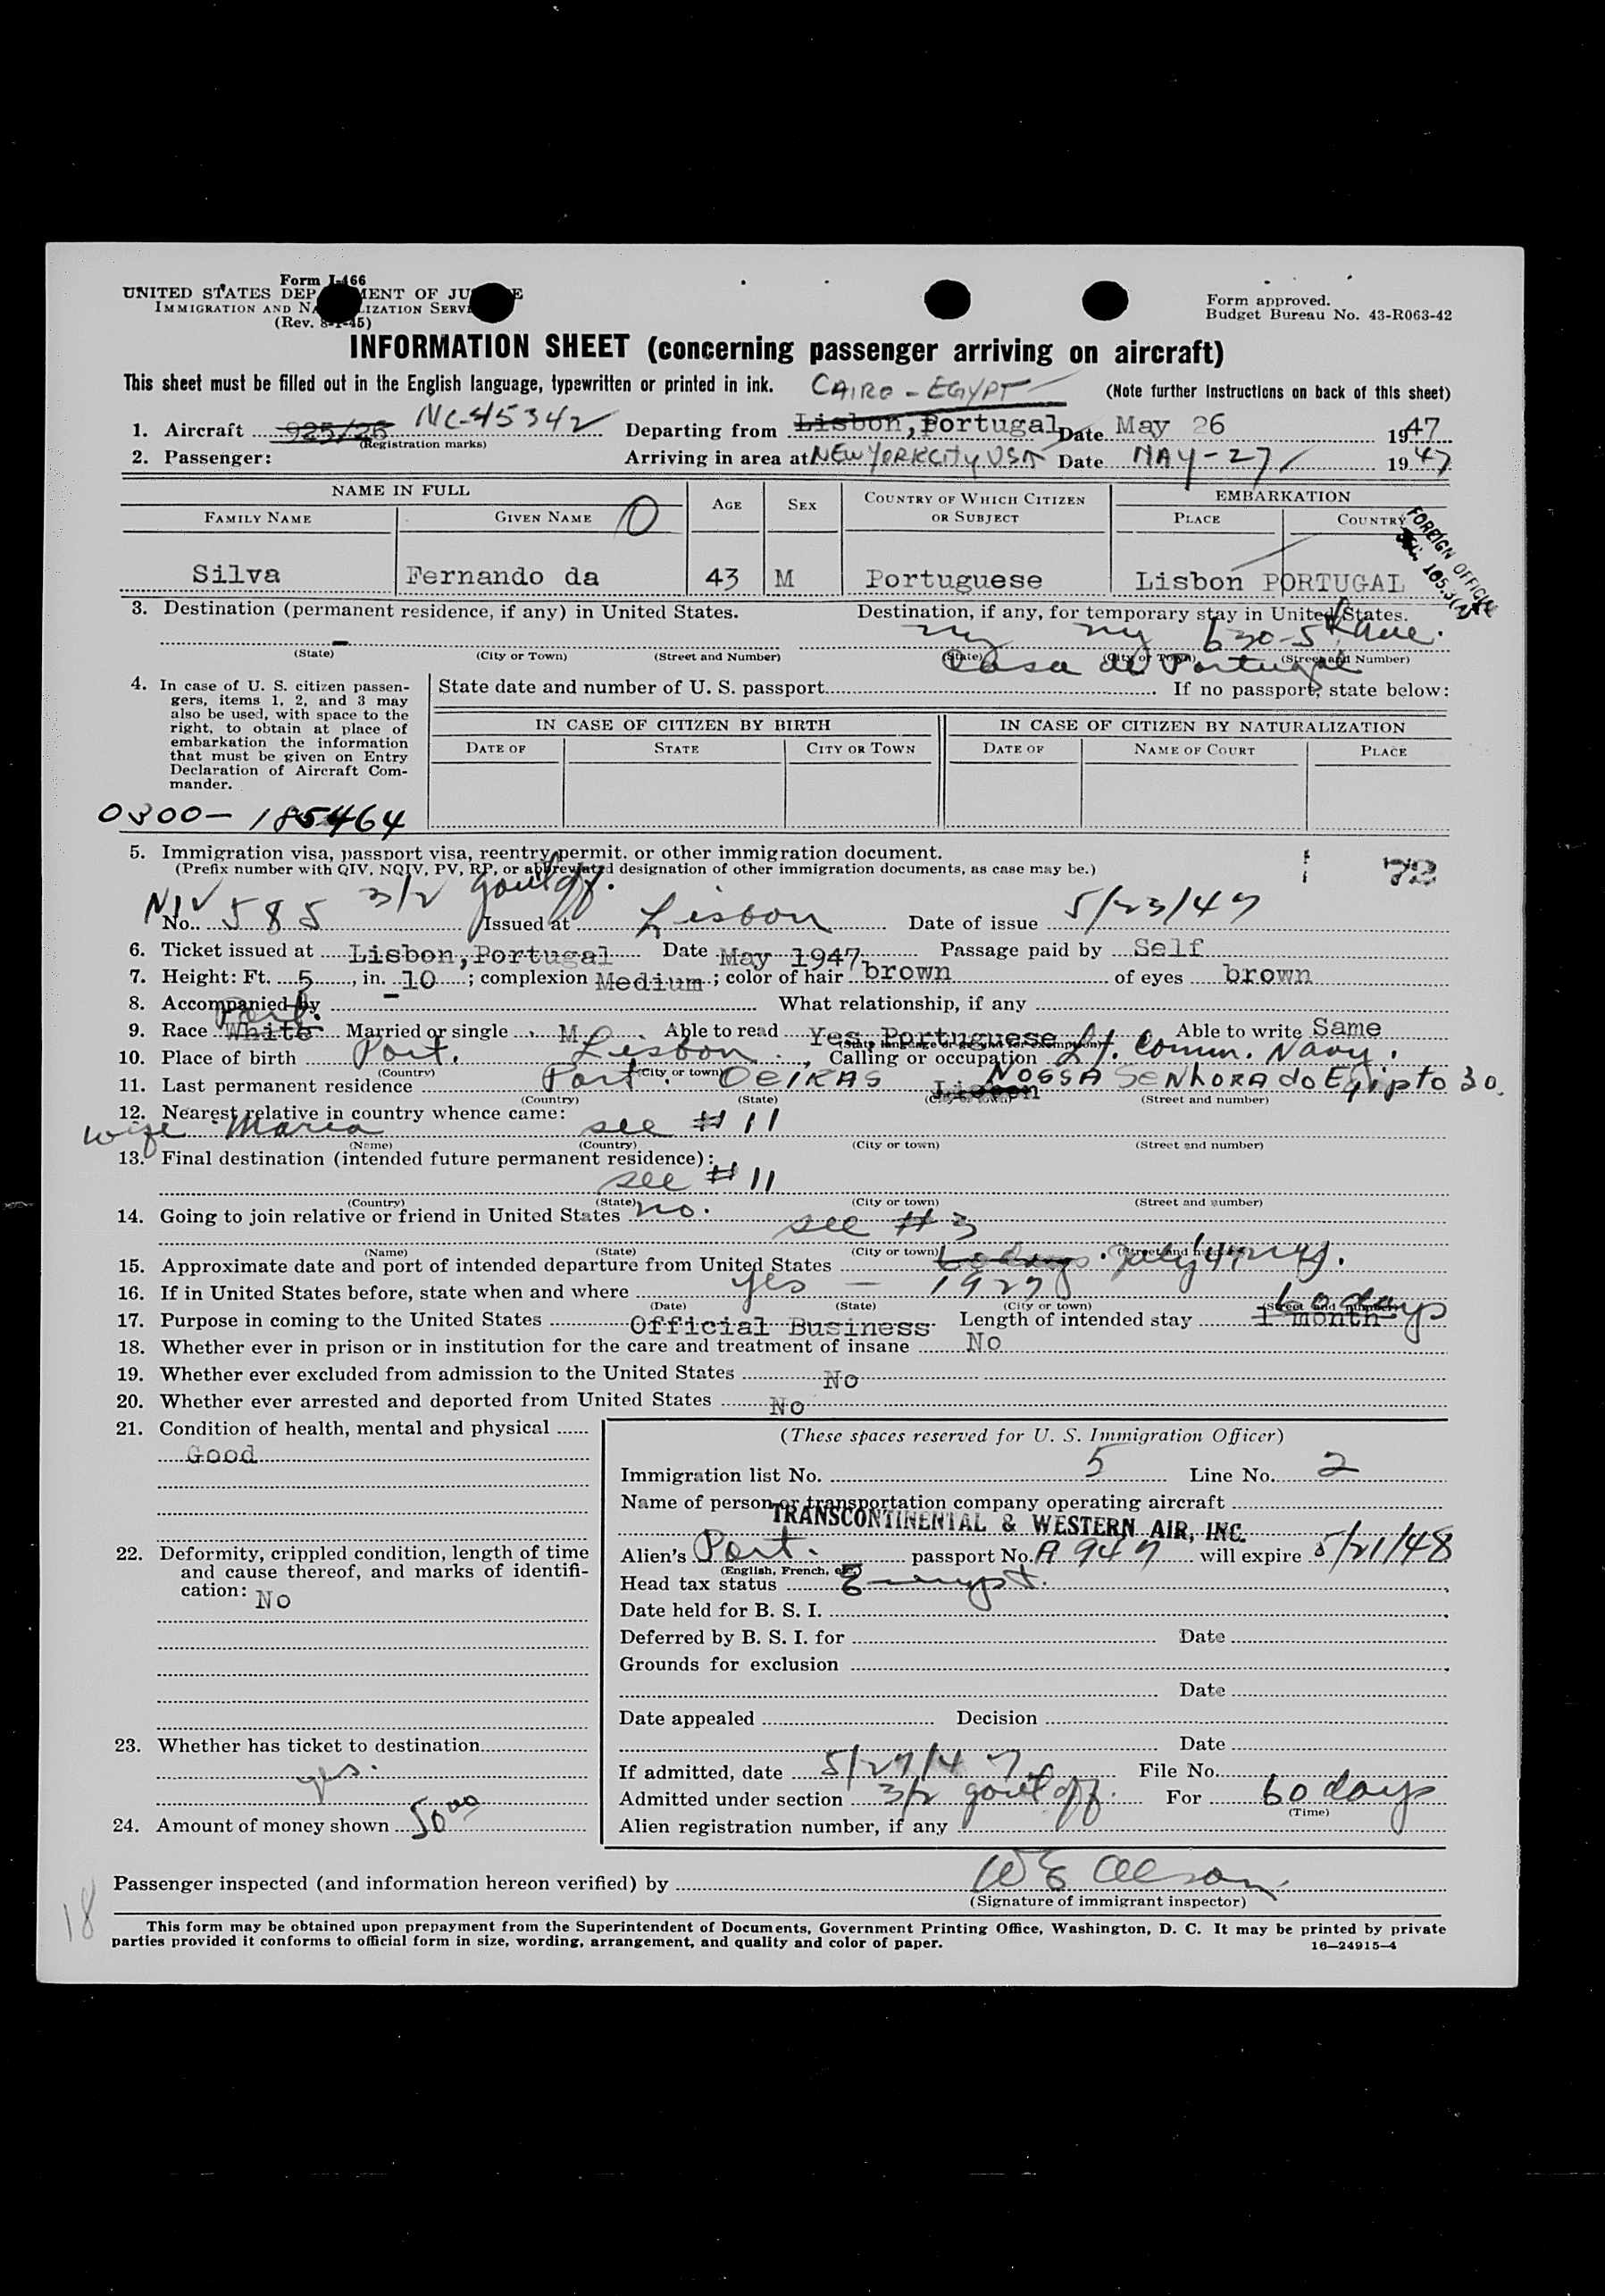 Form I-466
UNITED STATES DEP MENT OF JU E
IMMIGRATION AND NA IZATION SERVI
(Rev. 8-1-45)
Form approved.
Budget Bureau No. 43-R063-42
INFORMATION SHEET (concerning passenger arriving on aircraft)
This sheet must be filled out in the English language, typewritten or printed in ink. CAIRO - EGYPT (Note further instructions on back of this sheet)
1. Aircraft 925/26 NC-45342 Departing from Lisbon, Portugal Date May 26 1947
(Registration marks)
2. Passenger: Arriving in area at NEW YORK CITY USA Date MAY-27 1947
NAME IN FULL AGE SEX COUNTRY OF WHICH CITIZEN OR SUBJECT EMBARKATION
FAMILY NAME GIVEN NAME O PLACE COUNTRY
FOREIGN OFFICIAL
Silva Fernando da 43 M Portuguese Lisbon PORTUGAL
3. Destination (permanent residence, if any) in United States. Destination, if any, for temporary stay in United States.
- ny ny 630-5th Ave.
(State) (City or Town) (Street and Number) (State) (City or Town) (Street and Number)
Casa de Portugal
4. In case of U. S. citizen passengers, items 1, 2, and 3 may also be used, with space to the right, to obtain at place of embarkation the information that must be given on Entry Declaration of Aircraft Commander.
State date and number of U. S. passport If no passport, state below:
IN CASE OF CITIZEN BY BIRTH IN CASE OF CITIZEN BY NATURALIZATION
DATE OF STATE CITY OR TOWN DATE OF NAME OF COURT PLACE
0300-185464
5. Immigration visa, passport visa, reentry permit, or other immigration document.
(Prefix number with QIV, NQIV, PV, RP, or abbreviated designation of other immigration documents, as case may be.)
3/2 gout off.
NIV No. 585 Issued at Lisbon Date of issue 5/23/47
6. Ticket issued at Lisbon, Portugal Date May 1947 Passage paid by Self
7. Height: Ft. 5, in. 10; complexion Medium; color of hair brown of eyes brown
8. Accompanied by What relationship, if any
Port.
9. Race White Married or single M. Able to read Yes Portuguese Able to write Same
(State language or ground for exemption)
10. Place of birth Port. Lisbon, Calling or occupation Lt. Comm. Navy.
(Country) (City or town)
11. Last permanent residence Port. OEIRAS Lisbon NOSSA SENHORA do Egipto 30.
(Country) (State) (City or town) (Street and number)
12. Nearest relative in country whence came:
wife Maria see # 11
(Name) (Country) (City or town) (Street and number)
13. Final destination (intended future permanent residence):
see # 11
(Country) (State) (City or town) (Street and number)
14. Going to join relative or friend in United States no.
see # 3
(Name) (State) (City or town) (Street and number)
15. Approximate date and port of intended departure from United States 60 days. July '47 ny.
16. If in United States before, state when and where yes - 1927
(Date) (State) (City or town) (Street and number)
17. Purpose in coming to the United States Official Business Length of intended stay 1 month 60 days
18. Whether ever in prison or in institution for the care and treatment of insane No
19. Whether ever excluded from admission to the United States No
20. Whether ever arrested and deported from United States No
21. Condition of health, mental and physical
Good
22. Deformity, crippled condition, length of time and cause thereof, and marks of identification: No
23. Whether has ticket to destination
yes.
24. Amount of money shown 50.00
(These spaces reserved for U. S. Immigration Officer)
Immigration list No. 5 Line No. 2
Name of person or transportation company operating aircraft
TRANSCONTINENTAL & WESTERN AIR, INC.
Alien's Port. passport No. A 947 will expire 5/21/48
(English, French, etc.)
Head tax status Exempt.
Date held for B. S. I.
Deferred by B. S. I. for Date
Grounds for exclusion
Date
Date appealed Decision
Date
If admitted, date 5/27/47 File No.
Admitted under section 3/2 gout off. For 60 days
(Time)
Alien registration number, if any
Passenger inspected (and information hereon verified) by
(Signature of immigrant inspector)
18
This form may be obtained upon prepayment from the Superintendent of Documents, Government Printing Office, Washington, D. C. It may be printed by private
parties provided it conforms to official form in size, wording, arrangement, and quality and color of paper. 16—24915-4